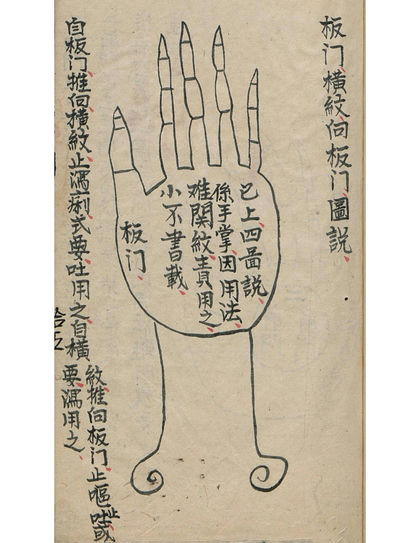 板门橫紋向板门圖説
已上四啚説
係手掌因用法
难関紋責用之
小不書載
板门
自板门推向橫紋止瀉痢式要吐用之自橫
紋推向板门止嘔吐或
要瀉用之